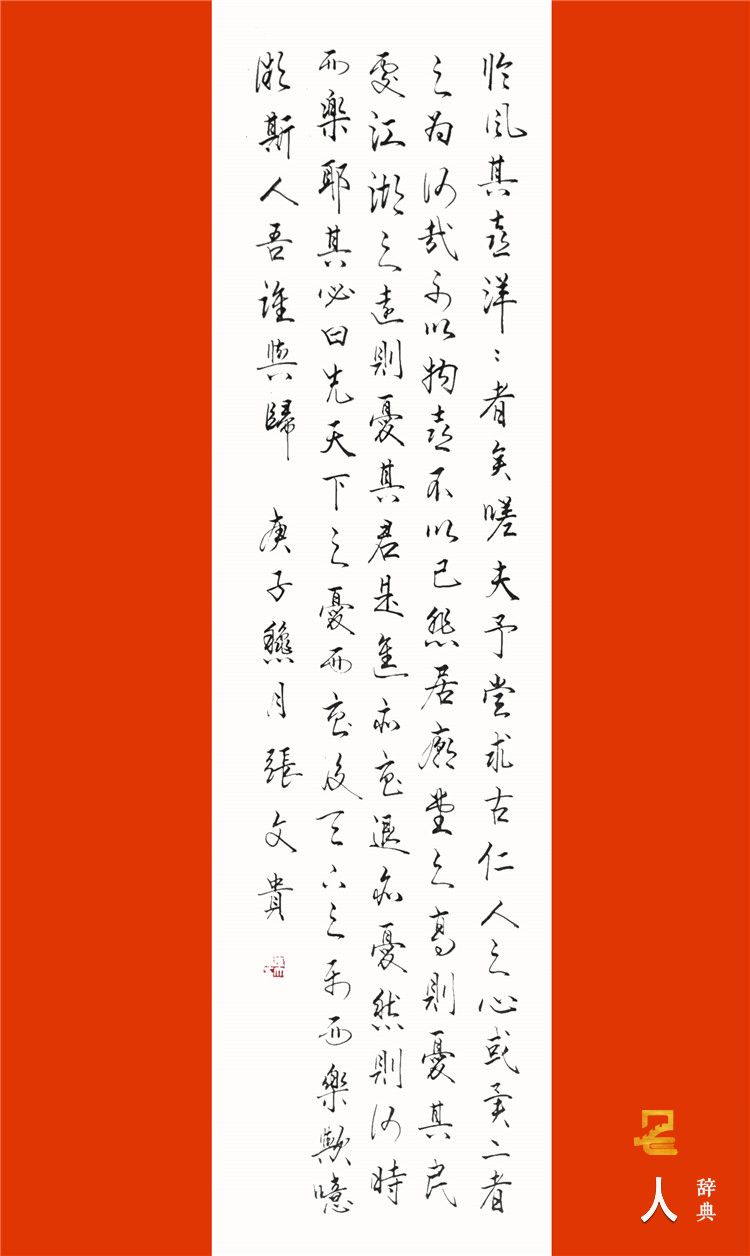 臨風其喜洋〻者矣嗟夫予嘗求古仁人之心或異二者
之為何哉不以物喜不以己悲居廟堂之高則憂其民
處江湖之遠則憂其君是進亦憂退亦憂然則何時
而樂耶其必曰先天下之憂而憂後天下之樂而樂歟噫
微斯人吾誰與歸 庚子月張文貴
名人
辞典